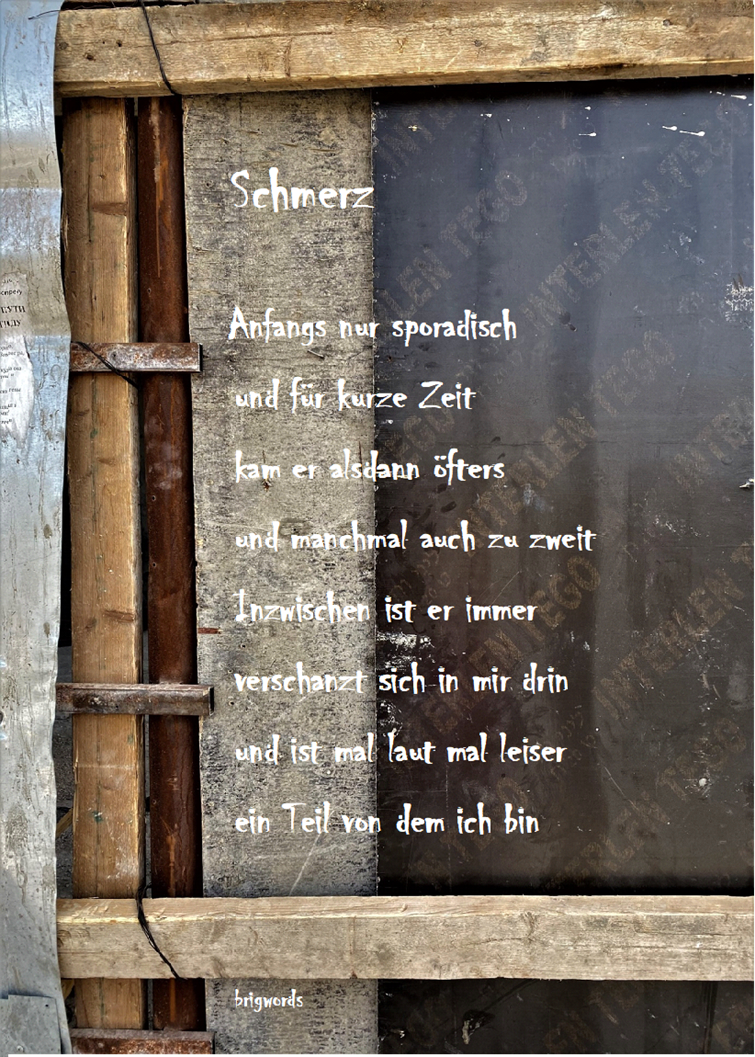 Schmerz
Anfangs nur sporadisch
und für kurze Zeit
kam er alsdann öfters
und manchmal auch zu zweit
Inzwischen ist er immer
verschanzt sich in mir drin
und ist mal laut mal leiser
ein Teil von dem ich bin
brigwords
INTERLEN TEGO
INTERLEN TEGO
INTERLEN TEGO